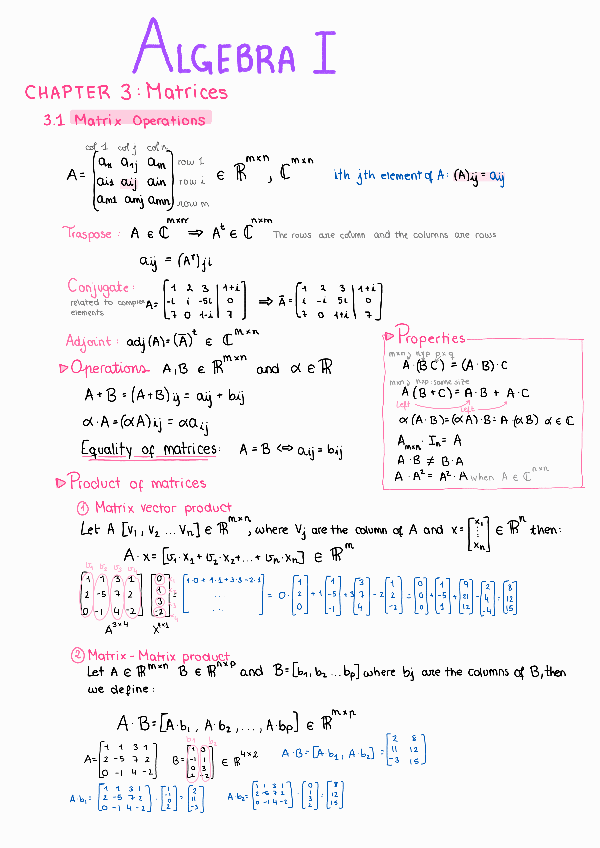 ALGEBRA I
CHAPTER 3: Matrices
3.1 Matrix Operations
col 1 col j col n
A = [a11 a1j a1n; ai1 aij ain; am1 amj amn] row 1 row i row m ∈ ℝ^m×n, ℂ^m×n
ith jth element of A: (A)ij = aij
Traspose: A ∈ ℂ^m×n ⇒ A^t ∈ ℂ^n×m The rows are column and the columns are rows
aij = (A^t)ji
Conjugate: related to complex elements
A = [1 2 3 1+i; -i i -5i 0; 7 0 1-i 7] ⇒ Ā = [1 2 3 1+i; i -i 5i 0; 7 0 1+i 7]
Adjoint: adj(A) = (Ā)^t ∈ ℂ^m×n
▷ Operations A, B ∈ ℝ^m×n and α ∈ ℝ
A + B = (A+B)ij = aij + bij
α·A = (αA)ij = αaij
Equality of matrices: A = B ⇔ aij = bij
▷ Properties
m×n, n×p p×q
A (B C) = (A·B)·C
m×n, n×p: same size
A (B+C) = A·B + A·C
Left left
α(A·B) = (αA)·B = A·(αB) α ∈ ℂ
Am×n · In = A
A·B ≠ B·A
A·A² = A²·A when A ∈ ℂ^n×n
▷ Product of matrices
① Matrix vector product
Let A [V1, V2 ... Vn] ∈ ℝ^m×n, where Vj are the column of A and x = [x1 ⋮ xn] ∈ ℝ^n then:
A·x = [v1·x1 + v2·x2 + ... + vn·xn] ∈ ℝ^m
v1 v2 v3 v4
[1 1 3 1; 2 -5 7 2; 0 -1 4 -2] [0; 1; 3; -2] = [1·0+1·1+3·3-2·1; ..; ..] = 0·[1; 2; 0] + 1·[1; -5; -1] + 3[3; 7; 4] - 2[1; 2; -2] = [0; 0; 0] + [1; -5; 1] + [9; 21; 12] - [2; 4; -4] = [8; 12; 15]
A^3×4 X^4×1
② Matrix-Matrix product
Let A ∈ ℝ^m×n B ∈ ℝ^n×p and B = [b1, b2 ... bp] where bj are the columns of B, then
we define:
A·B = [A·b1, A·b2, ..., A·bp] ∈ ℝ^m×p
b1 b2
A = [1 1 3 1; 2 -5 7 2; 0 -1 4 -2] B = [1 0; -1 1; 0 3; 2 -2] ∈ ℝ^4×2 A·B = [A·b1, A·b2] = [2 8; 11 12; -3 15]
A·b1 = [1 1 3 1; 2 -5 7 2; 0 -1 4 -2] · [1; -1; 0; 2] = [2; 11; -3] A·b2 = [1 1 3 1; 2 -5 7 2; 0 -1 4 -2] · [0; 1; 3; 2] = [8; 12; 15]